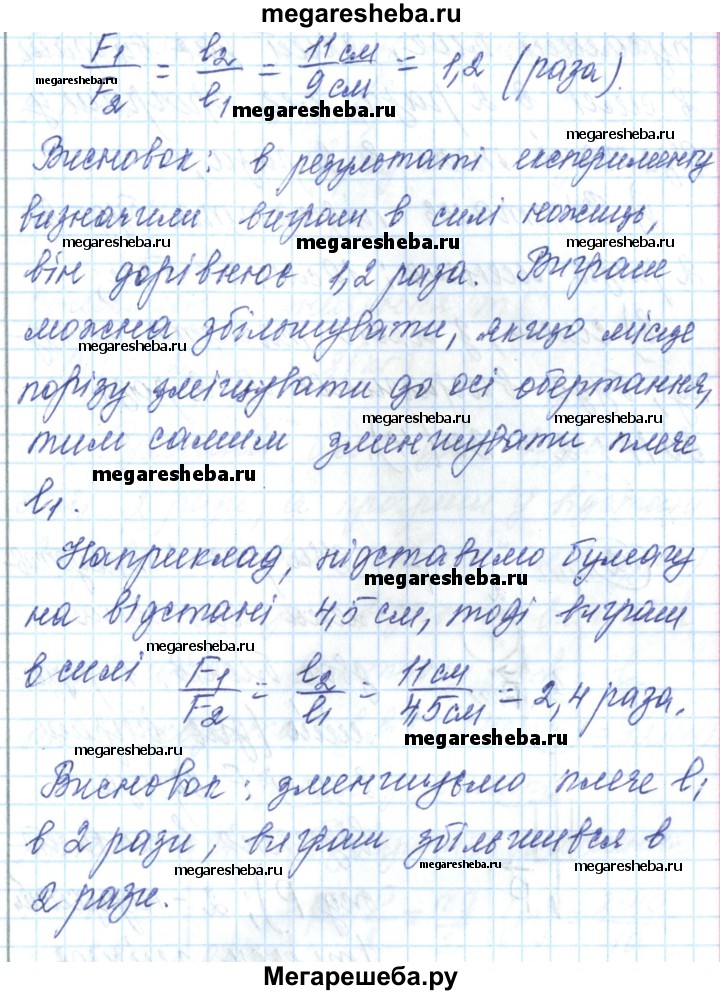 megaresheba.ru
F1/F2 = l2/l1 = 11 см/9 см = 1,2 (раза).
megaresheba.ru
megaresheba.ru
megaresheba.ru
Висновок: в результаті експерименту
визначили виграш в силі ножиць,
megaresheba.ru
megaresheba.ru
megaresheba.ru
він дорівнює 1,2 раза. Виграш
можна збільшувати, якщо місце
megaresheba.ru
порізу зміщувати до осі обертання,
megaresheba.ru
megaresheba.ru
тим самим зменшувати плече
megaresheba.ru
l1.
Наприклад, підставимо бумагу
megaresheba.ru
на відстані 4,5 см, тоді виграш
megaresheba.ru
в силі F1/F2 = l2/l1 = 11 см/4,5 см = 2,4 раза.
megaresheba.ru
megaresheba.ru
Висновок: зменшуємо плече l1
в 2 рази, виграш збільшився в
megaresheba.ru
megaresheba.ru
megaresheba.ru
2 рази.
Мегарешеба.ру